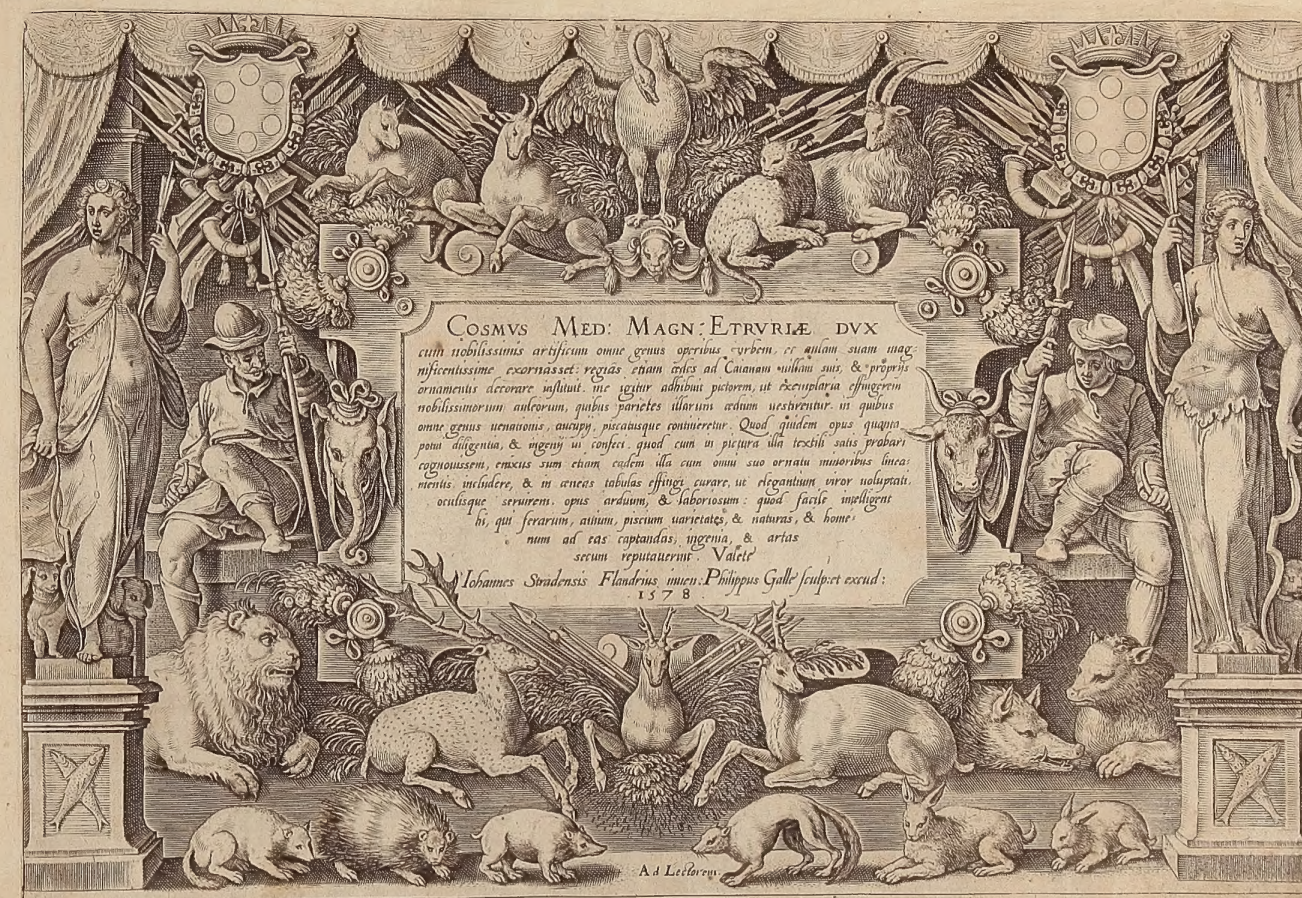 COSMVS MED: MAGN: ETRVRIÆ DVX
cum nobilissimis artificum omne genus operibus vrbem, et aulam suam mag-
nificentissime exornasset: regias etiam ædes ad Caianam uillam suis, & proprijs
ornamentis decorare instituit. me igitur adhibuit pictorem, ut exemplaria effingerem
nobilissimorum auleorum, quibus parietes illarum ædium uestirentur. in quibus
omne genus uenationis, aucupij, piscatusque contineretur. Quod quidem opus quanta
potui diligentia, & ingenij ui confeci. quod cum in pictura illa textili satis probari
cognouissem, enixus sum etiam eadem illa cum omni suo ornatu minoribus linea:
mentis includere, & in æneas tabulas effingi curare, ut elegantium viror voluptati,
oculisque seruirem. opus arduum, & laboriosum: quod facile intelligent
hi, qui ferarum, auium, piscium uarietates, & naturas, & homi-
num ad eas captandas, ingenia, & artas
secum reputauerint. Valete
Iohannes Stradensis Flandrius inuen: Philippus Galle sculp: et excud:
1578.
Ad Lectorem.